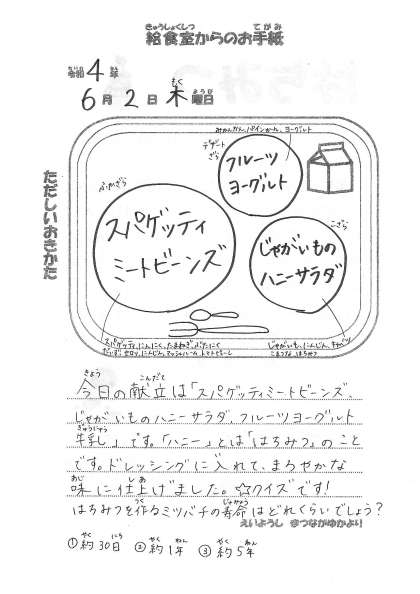 給食室からのお手紙
令和4年
6月2日木曜日
ただしいおきかた
みかんかん、パインかん、ヨーグルト
デザートざら
フルーツ
ヨーグルト
ふかざら
スパゲッティ
ミートビーンズ
こざら
じゃがいもの
ハニーサラダ
スパゲッティ、にんにく、たまねぎ、ぶたにく
だいず、セロリ、にんじん、マッシュルーム、トマトピューレ
じゃがいも、にんじん、キャベツ
こまつな、はちみつ
今日の献立は「スパゲッティミートビーンズ、
じゃがいものハニーサラダ、フルーツヨーグルト
牛乳」です。「ハニー」とは「はちみつ」のこと
です。ドレッシングに入れて、まろやかな
味に仕上げました。☆クイズです!
はちみつを作るミツバチの寿命はどれくらいでしょう?
えいようし
①約30日 ②約1年 ③約5年